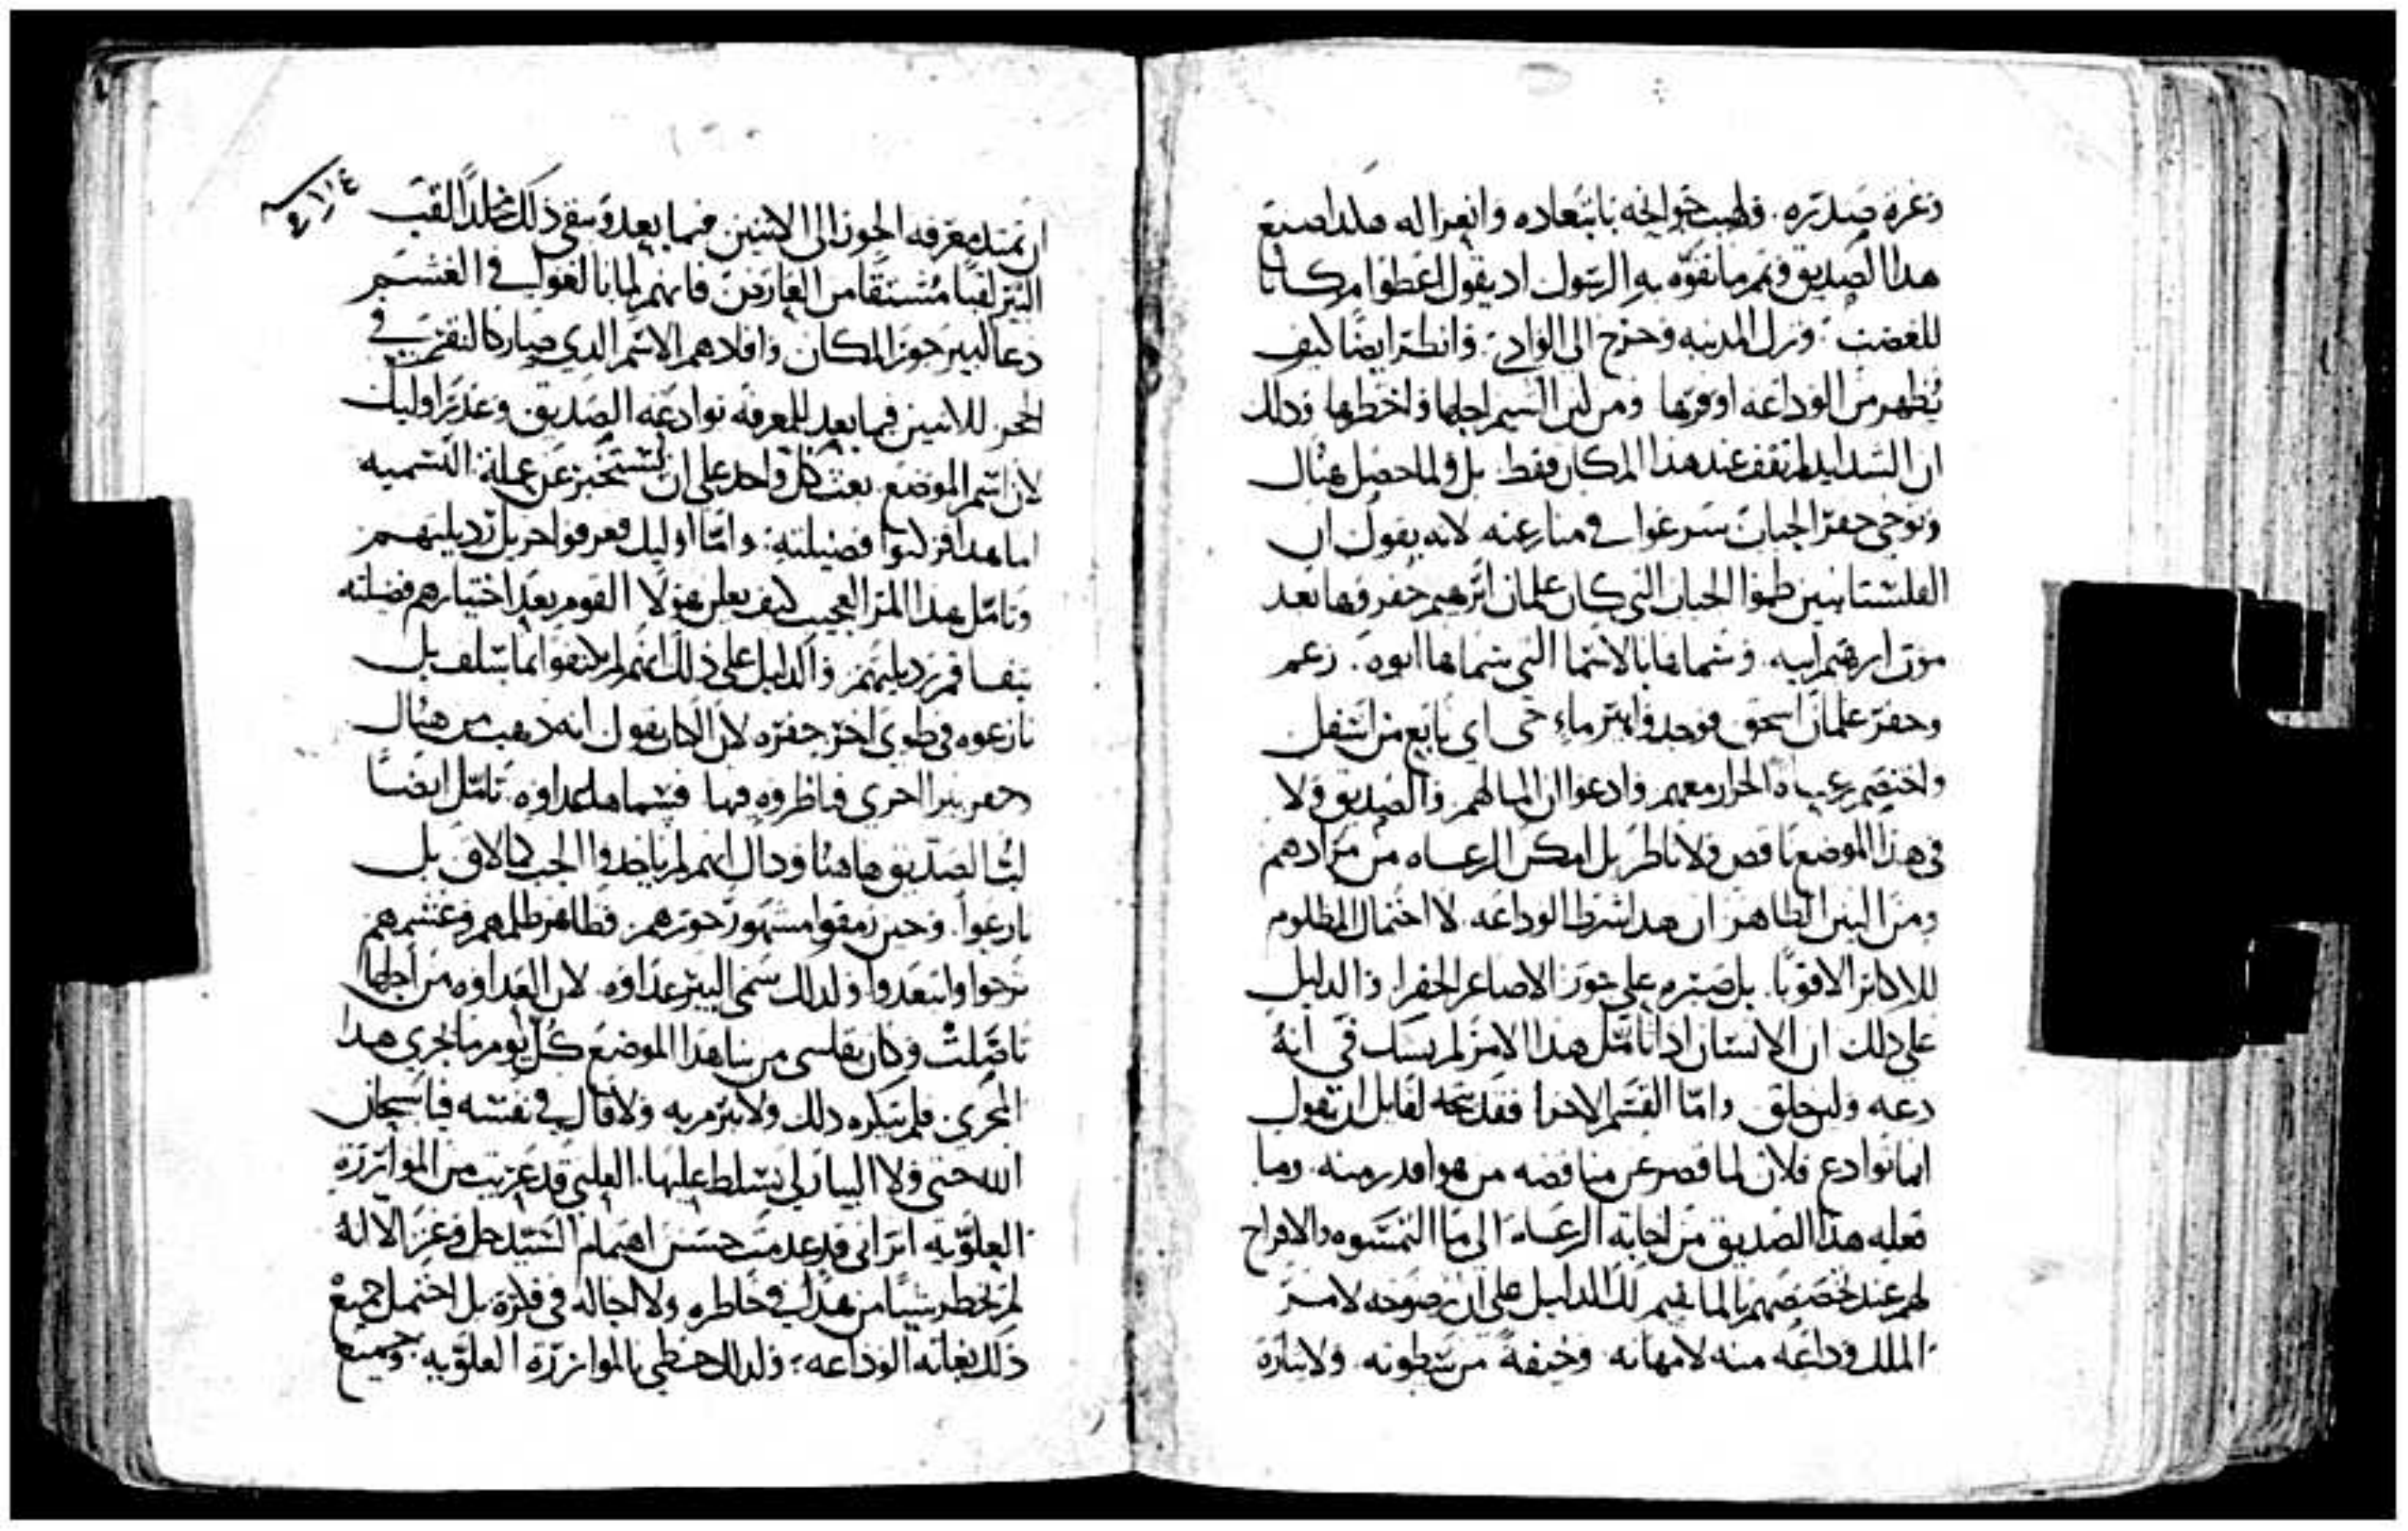 وغزه صدره. وطيب خواطره بابتعاده وانعزاله هكذا صنع
هدا الصديق وتمم ما تفوه به الرسول اد يقول اعطوا مكانا
للغضب. وترك المدينه وخرج الى الوادي. وانظر ايضا كيف
يظهر من الوداعه اوفرها ومن لين الشيم اجلها واخطرها ودلك
ان الشدايد لم تقف عند هذا المكان فقط. بل ولما حصل هناك
وتوخى حفر الجباب شرعوا في منازعته لانه يقول ان
الفلشتانيين طموا الجباب التي كان غلمان ابرهيم حفروها بعد
موت ابرهيم ابيه. وسماها بالاسما التي سماها ابوه. زعم
وحفر غلمان اسحق فوجدوا بير ماء حي اي نابع من اسفل
واختصم رعاه الجرار معهم وادعوا ان الما لهم والصديق ولا
في هذا الموضع ناقص ولا ناظر بل امكن الرعاه من مرادهم
ومن البين الظاهر ان هدا شرط الوداعه. لا احتمال المظلوم
للاكابر الاقويا. بل صبره على جور الاصاغر الحقرا. والدليل
على دلك ان الانسان ادا تامل هدا الامر لم يشك في انه
دعه ولين خلق واما القسم الاخر فقد يتجه لقايل ان يقول
انما توادع فلان لما قصر عن مناقضه من هو اقدر منه. وما
فعله هذا الصديق من اجابه الرعاه الى ما التمسوه والافراج
لهم عند تخصصهم بالما يقيم لك الدليل على ان رضوخه لامر
الملك وداعه منه لا مهانه وخيفة من سطوته. ولا ثباره
ان تمتد معرفه الجور الى الاتيين فيما بعد وبقي ذلك مخلدا لقب
البير لقبا مشتقا من العارض فانهم لما بالغوا في الغشم
دعا البير جور المكان وافادهم الاسم الذي صار كالنقش في
الحجر للاتيين فيما بعد للمعرفه توادعه الصديق وغدر اوليك
لان اسم الموضع بعث كل واحد على ان يستخبر عن علة التسميه
وتامل هدا المر العجيب كيف يعلن هولا القوم بعد اختيارهم فضيلته
بتفاقم رديلتهم والدليل على ذلك انهم لم يكتفوا بما سلف بل
نازعوه في طوي اخر حفره لان الكتاب يقول انه ذهب من هناك
وحفر بيرا اخرى فناظروه فيها فسماها عداوه تامل ايضا
لب الصديق هاهنا وداك انهم لم ياخدوا الجب كالاول بل
نازعوا. وحين رمقوا مشهور جورهم. وظاهر ظلمهم وغشمهم
نزحوا وابتعدوا ولدلك سمى البير عداوه. لان العداوه من اجلها
تاصلت وكان يقاسي من سا هذا الموضع كل يوم ما يجري هدا
المجرى فلم يكره دلك ولا تبرم به ولا قال في نفسه فيا سبحان
الله حتى ولا البيار لي تسلط عليها. العلي قد عريت من الموازرة
العلويه اتراني قد عدمت حسن اهتمام السيد جل وعز الا انه
لم يخطر شيا من هذا في خاطره ولا اجاله في فكره بل احتمل جميع
ذلك بغاية الوداعه؛ ولدلك حظي بالموازرة العلويه. وجميع